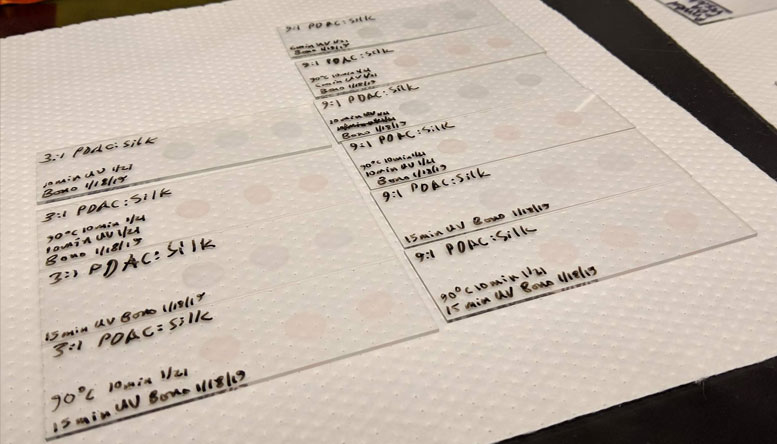 3:1 PDAC:Silk
10min UV 1/21
Bono 1/18/19
3:1 PDAC:Silk
90°C 10min 1/21
10min UV 1/21
Bono 1/18/19
3:1 PDAC:Silk
15min UV Bono 1/18/19
3:1 PDAC:Silk
90°C 10min 1/21
15min UV Bono 1/18/19
9:1 PDAC:Silk
UV 1/21
Bono 1/18/19
9:1 PDAC:Silk
90°C 10min 1/21
UV 1/21
Bono 1/18/19
9:1 PDAC:Silk
10min UV
Bono 1/18/19
9:1 PDAC:Silk
90°C 10min 1/21
10min UV 1/21
Bono 1/18/19
9:1 PDAC:Silk
15min UV Bono 1/18/19
9:1 PDAC:Silk
90°C 10min 1/21
15min UV Bono 1/18/19